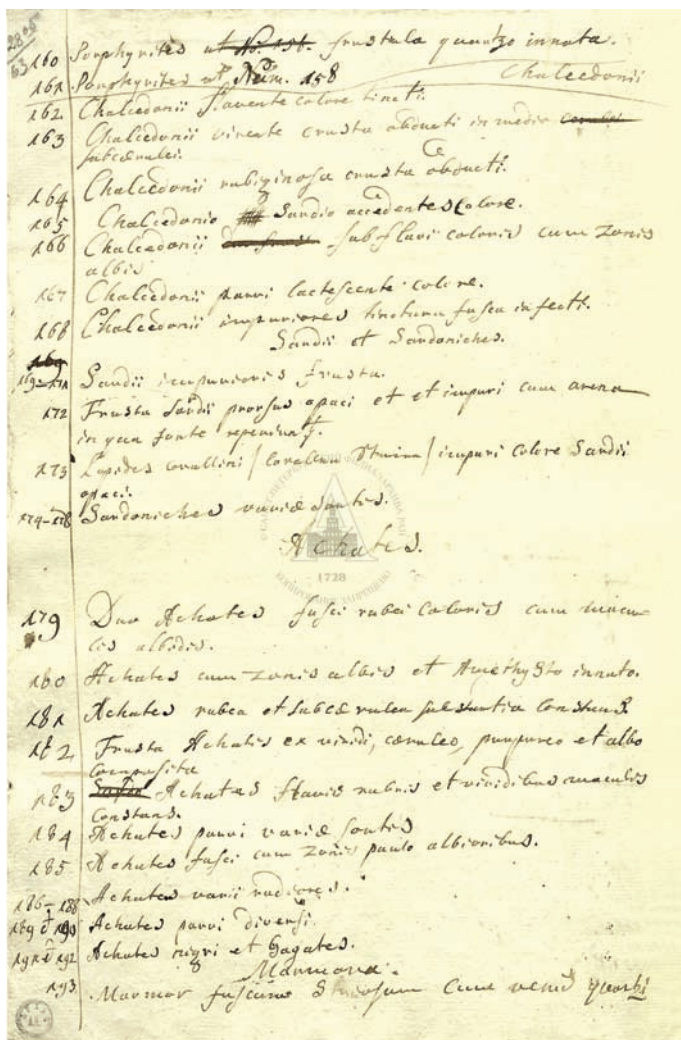 2805
63
160 Porphyrites ut No. 156. frustula quartzo innata.
161. Porphyrites ut Num. 158
Chalcedonii
162. Chalcedonii flavente colore tincti.
163 Chalcedonii virente crusta obducti in medio
subcærulei.
164 Chalcedonii rubiginosa crusta obducti.
165 Chalcedonio Sardio accedente colore.
166 Chalcedonii subflavi coloris cum zonis
albis
167 Chalcedonii parvi lactescente colore.
168 Chalcedonii impuriores tinctura fusca infecti.
Sardii et Sardoniches.
169
169-171 Sardii impurioris frusta.
172 Frusta Sardii prorsus opaci et et impuri cum arena
in qua sponte reperiunt.
173 Lapides corallini / / impuri colore Sardii
opaci.
174-178 Sardoniches variæ sortis.
Achates.
1728
179 Duo Achates fusci rubei coloris cum macu-
lis albidis.
180 Achates cum zonis albis et Amethysto innato.
181 Achates rubea et subcærulea substantia constans
182 Frusta Achatis ex viridi, cæruleo, purpureo et albo
composita
183 Achates flavis rubris et viridibus maculis
constans.
184 Achates parvi variæ sortis
185 Achates fusci cum zonis paulo albioribus.
186-188 Achates varii rudiores.
189 et 190 Achates parvi diversi.
191 et 192 Achates nigri et Gagates.
Marmora.
193 Marmor fuscum cum venis quartzi